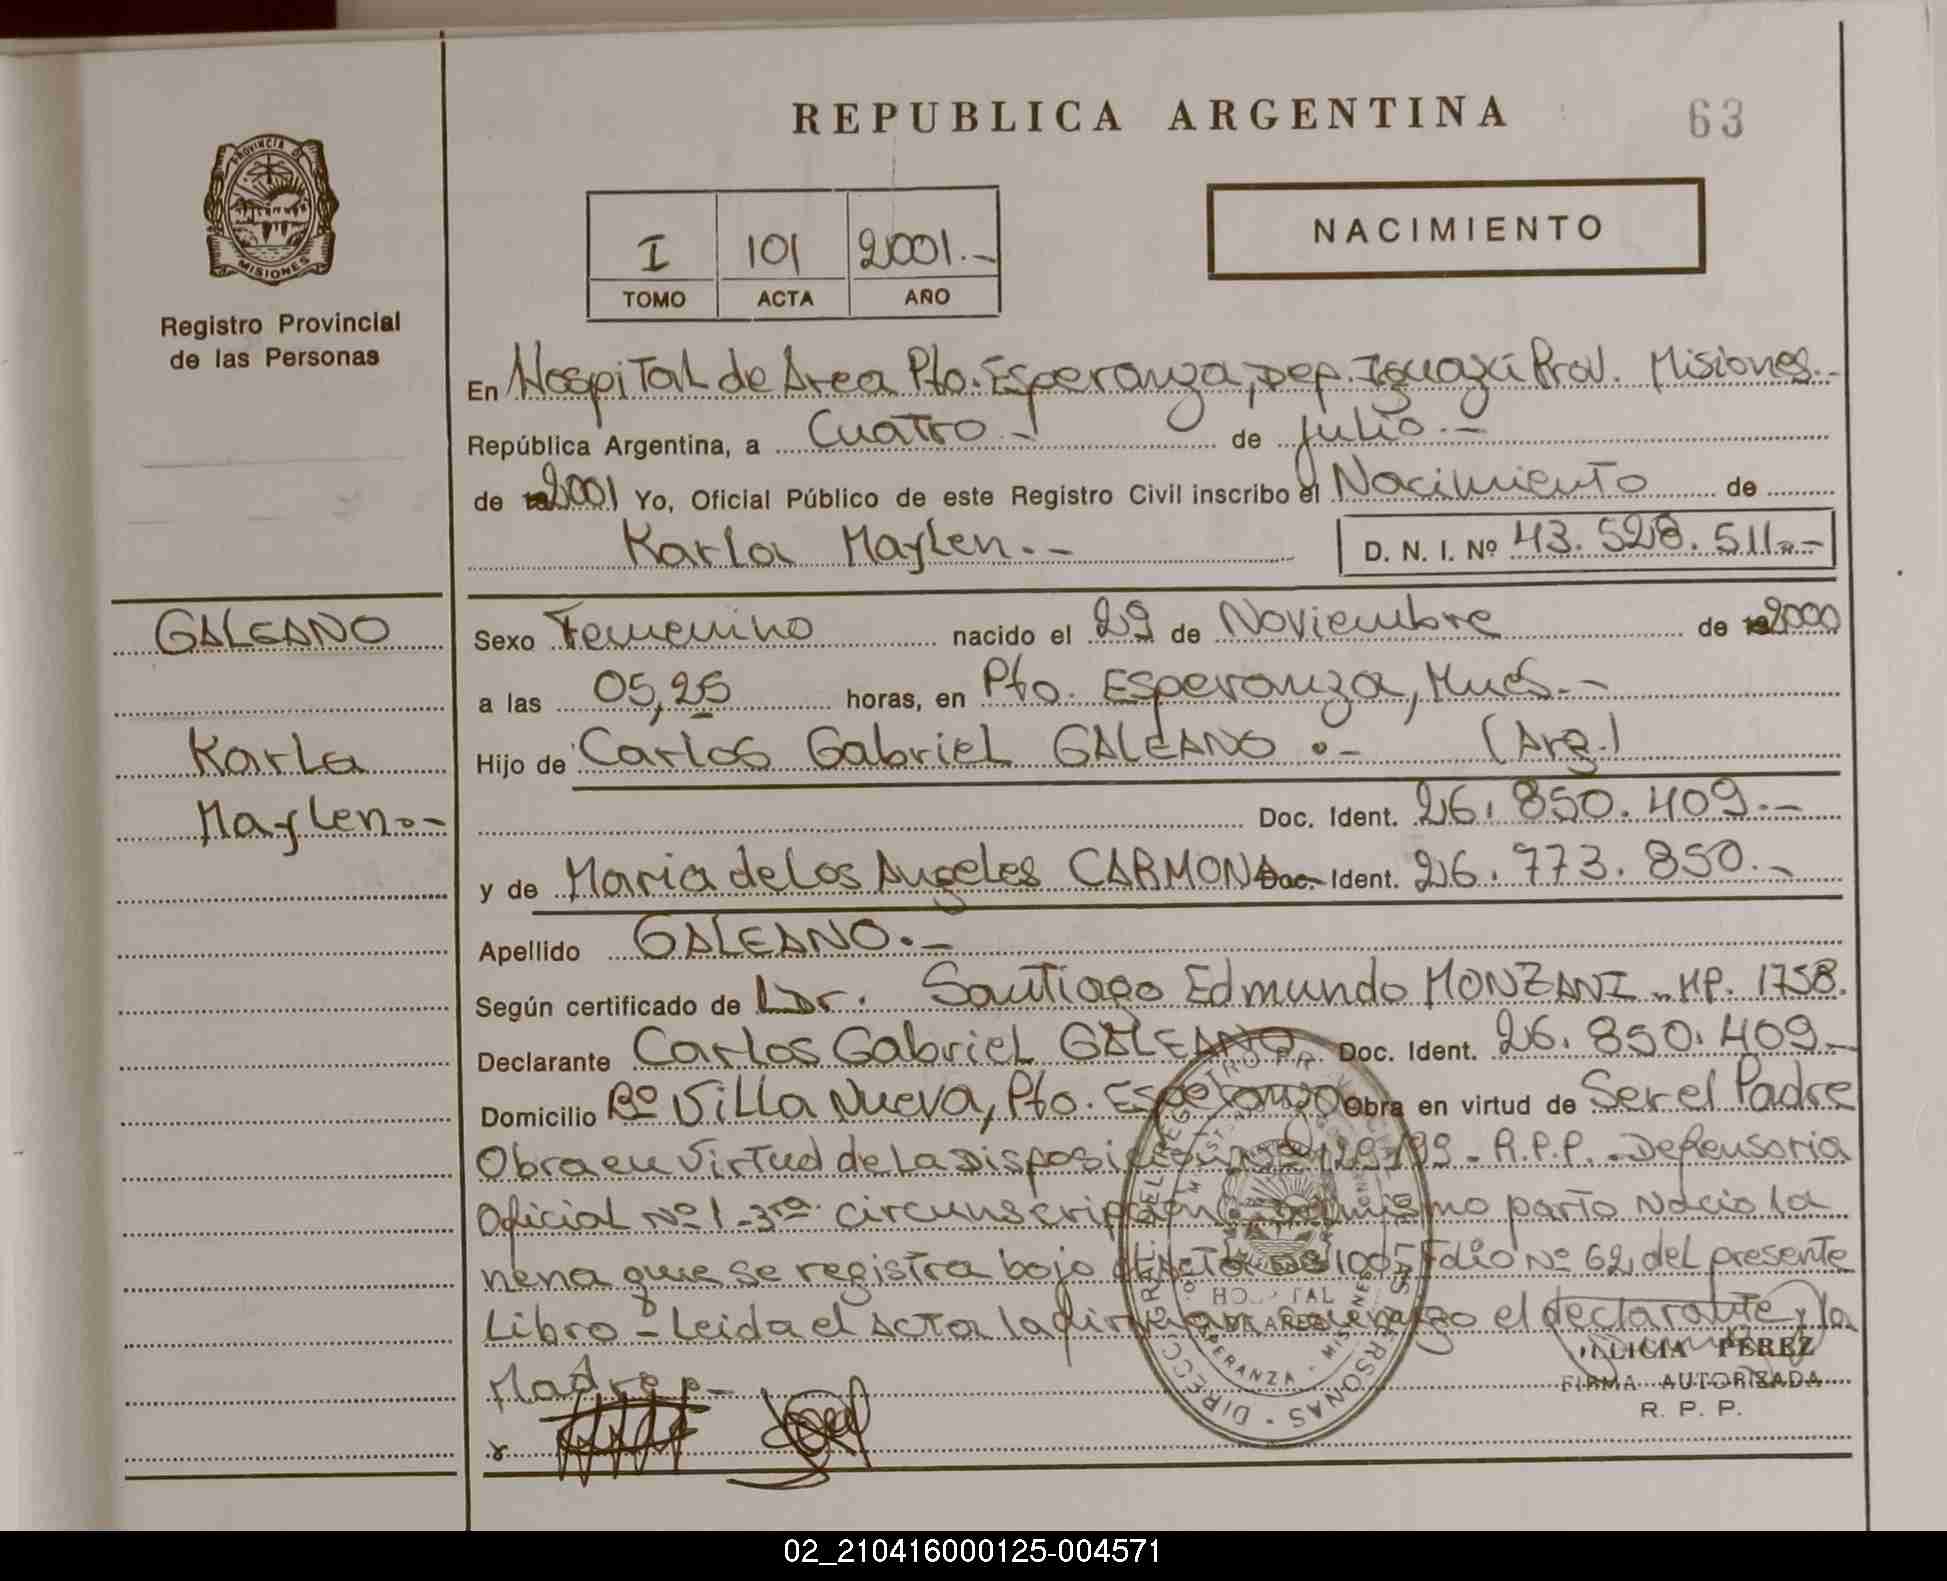 REPUBLICA ARGENTINA
63
PROVINCIA DE
MISIONES
Registro Provincial
de las Personas
I 101 2001.-
TOMO ACTA AÑO
NACIMIENTO
En Hospital de Area Pto. Esperanza, Dep. Iguazú Prov. Misiones.-
República Argentina, a Cuatro.- de julio.-
de 2001 Yo, Oficial Público de este Registro Civil inscribo el Nacimiento de
Karla Maylen.-
D. N. I. Nº 43.528.511.-
GALEANO
Karla
Maylen.-
Sexo Femenino nacido el 29 de Noviembre de 2000
a las 05,25 horas, en Pto. Esperanza, Mnes.-
Hijo de Carlos Gabriel GALEANO.- (Arg.)
Doc. Ident. 26.850.409.-
y de Maria de Los Angeles CARMONA Doc. Ident. 26.773.850.-
Apellido GALEANO.-
Según certificado de Dr. Santiago Edmundo MONZANI - MP. 1758.
Declarante Carlos Gabriel GALEANO Doc. Ident. 26.850.409.-
Domicilio Bº Villa Nueva, Pto. Esperanza Obra en virtud de Ser el Padre
Obra en Virtud de La Disposición Nº 129/99 - R.P.P. - Defensoria
Oficial Nº 1 - 3ra. circunscripción. mismo parto Nacio la
nena que se registra bajo el Acta Nº 100, Folio Nº 62, del presente
Libro - Leida el Acta la firman conmigo el declarante y la
Madre.-
HOSPITAL
DE AREA
ESPERANZA - MISIONES
ALICIA PEREZ
FIRMA AUTORIZADA
R. P. P.
02_210416000125-004571